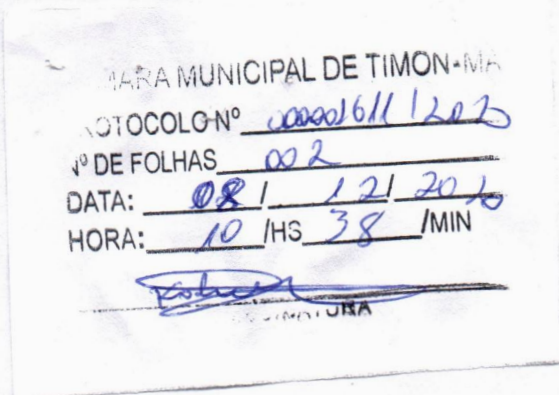 MARA MUNICIPAL DE TIMON-MA
ROTOCOLO Nº 000001611/2020
Nº DE FOLHAS 002
DATA: 08/ 12/ 2020
HORA: 10 /HS 38 /MIN